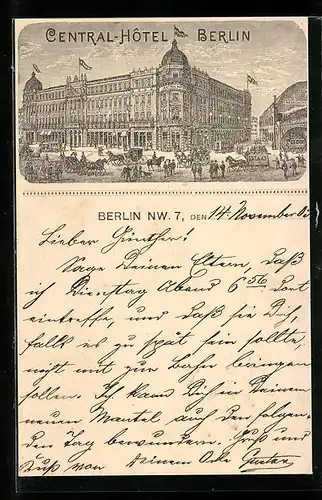 CENTRAL-HÔTEL BERLIN
BERLIN NW. 7, DEN 14. November 03
Lieber Günther!
Sage Deinen Eltern, daß
ich Dienstag Abend 6 56 dort
eintreffe, und daß sie Dich,
falls es zu spät sein sollte,
nicht mit zur Bahn bringen
sollen. Ich kann Dich in Deinem
neuen Mantel auch den folgen-
den Tag bewundern. Gruß und
Kuß von Deinem Onkel Gustav